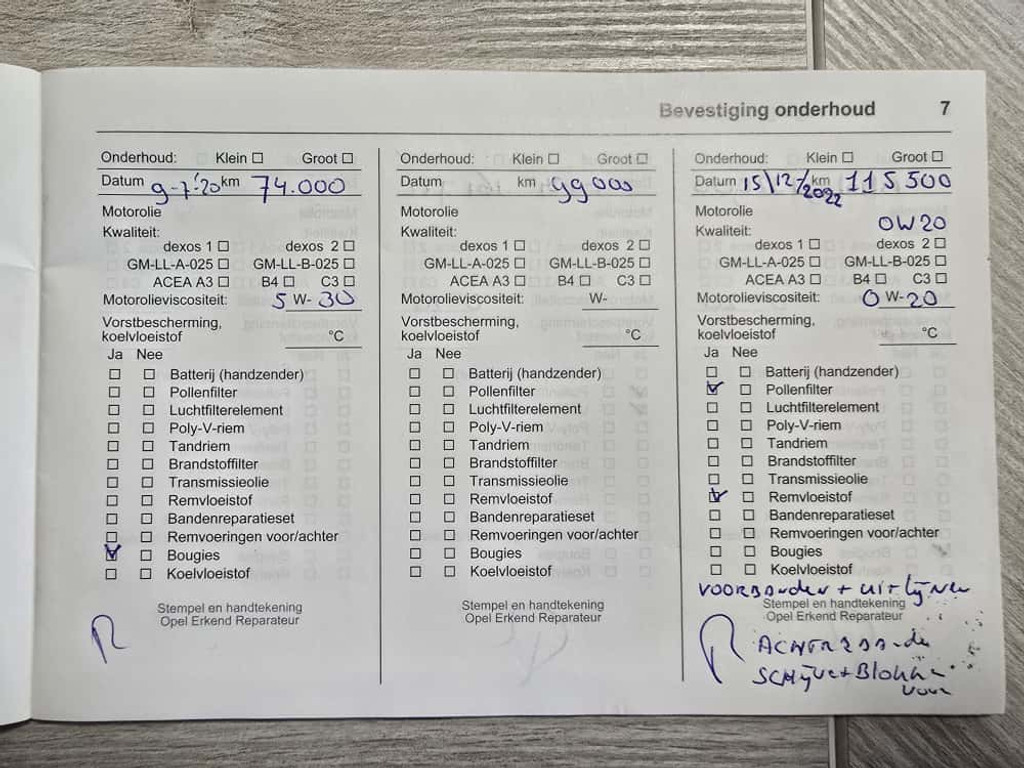 Bevestiging onderhoud 7
Onderhoud: Klein ☐ Groot ☐
Datum 9-7-'20 km 74.000
Motorolie
Kwaliteit:
dexos 1 ☐ dexos 2 ☐
GM-LL-A-025 ☐ GM-LL-B-025 ☐
ACEA A3 ☐ B4 ☐ C3 ☐
Motorolieviscositeit: 5 W- 30
Vorstbescherming,
koelvloeistof °C
Ja Nee
☐ ☐ Batterij (handzender)
☐ ☐ Pollenfilter
☐ ☐ Luchtfilterelement
☐ ☐ Poly-V-riem
☐ ☐ Tandriem
☐ ☐ Brandstoffilter
☐ ☐ Transmissieolie
☐ ☐ Remvloeistof
☐ ☐ Bandenreparatieset
☐ ☐ Remvoeringen voor/achter
☑ ☐ Bougies
☐ ☐ Koelvloeistof
Stempel en handtekening
Opel Erkend Reparateur
Onderhoud: Klein ☐ Groot ☐
Datum km 99000
Motorolie
Kwaliteit:
dexos 1 ☐ dexos 2 ☐
GM-LL-A-025 ☐ GM-LL-B-025 ☐
ACEA A3 ☐ B4 ☐ C3 ☐
Motorolieviscositeit: W-
Vorstbescherming,
koelvloeistof °C
Ja Nee
☐ ☐ Batterij (handzender)
☐ ☐ Pollenfilter
☐ ☐ Luchtfilterelement
☐ ☐ Poly-V-riem
☐ ☐ Tandriem
☐ ☐ Brandstoffilter
☐ ☐ Transmissieolie
☐ ☐ Remvloeistof
☐ ☐ Bandenreparatieset
☐ ☐ Remvoeringen voor/achter
☐ ☐ Bougies
☐ ☐ Koelvloeistof
Stempel en handtekening
Opel Erkend Reparateur
Onderhoud: Klein ☐ Groot ☐
Datum 15/12/2022 km 115500
Motorolie
Kwaliteit: 0W20
dexos 1 ☐ dexos 2 ☐
GM-LL-A-025 ☐ GM-LL-B-025 ☐
ACEA A3 ☐ B4 ☐ C3 ☐
Motorolieviscositeit: 0 W- 20
Vorstbescherming,
koelvloeistof °C
Ja Nee
☐ ☐ Batterij (handzender)
☑ ☐ Pollenfilter
☐ ☐ Luchtfilterelement
☐ ☐ Poly-V-riem
☐ ☐ Tandriem
☐ ☐ Brandstoffilter
☐ ☐ Transmissieolie
☑ ☐ Remvloeistof
☐ ☐ Bandenreparatieset
☐ ☐ Remvoeringen voor/achter
☐ ☐ Bougies
☐ ☐ Koelvloeistof
VOORBanden + uitlijnen
Stempel en handtekening
Opel Erkend Reparateur
SCHijve + Blokke
voor